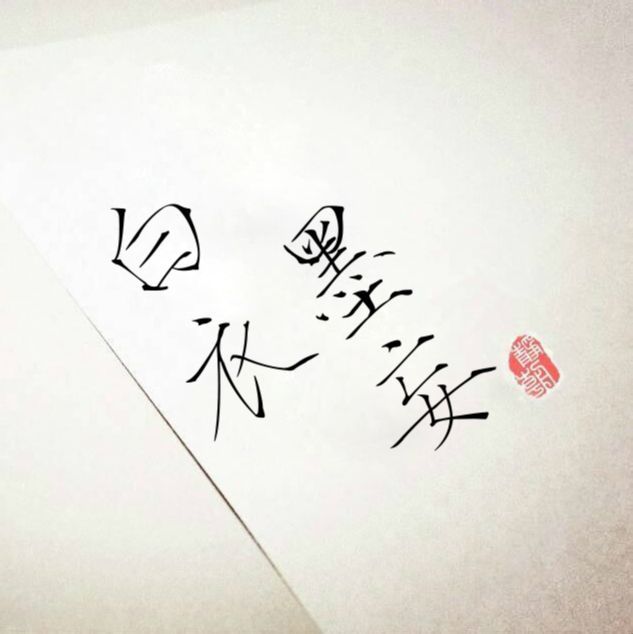 白衣
墨安